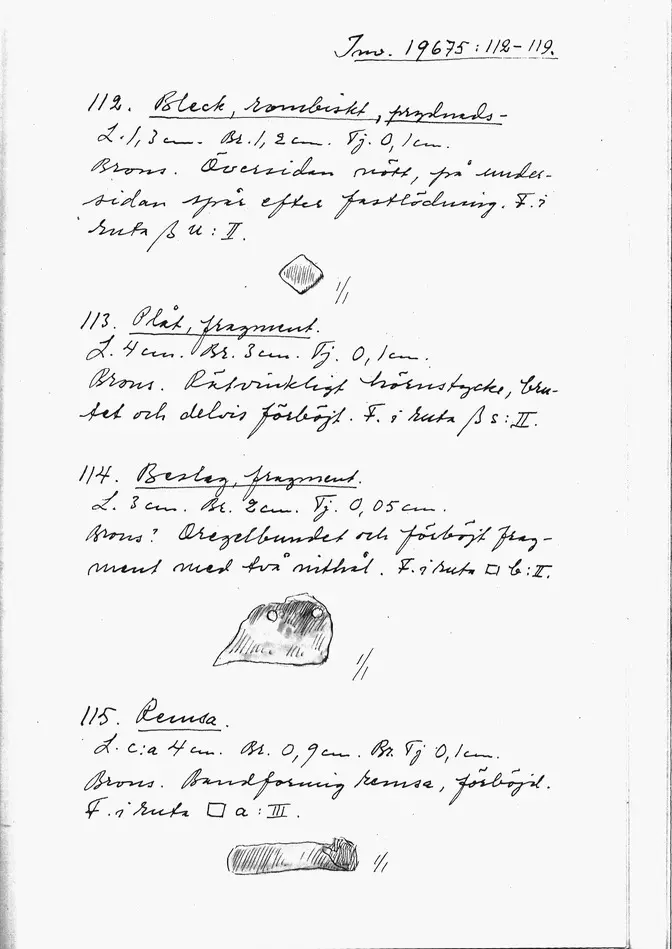 Inv. 19675:112-119.
112. Bleck, rombiskt, prydnads-
L. 1,3 cm. Br. 1,2 cm. Tj. 0,1 cm.
Brons. Översidan nött, på under-
sidan spår efter fastlödning. F. i
ruta ß u : II.
1/1
113. Plåt, fragment.
L. 4 cm. Br. 3 cm. Tj. 0,1 cm.
Brons. Rätvinkligt hörnstycke, bru-
tet och delvis förböjt. F. i ruta ß s : II.
114. Beslag, fragment.
L. 3 cm. Br. 2 cm. Tj. 0,05 cm.
Brons? Oregelbundet och förböjt frag-
ment med två nithål. F. i ruta □ b : II.
1/1
115. Remsa.
L. c:a 4 cm. Br. 0,9 cm. Br. Tj 0,1 cm.
Brons. Bandformig remsa, förböjd.
F. i ruta □ a : III.
1/1